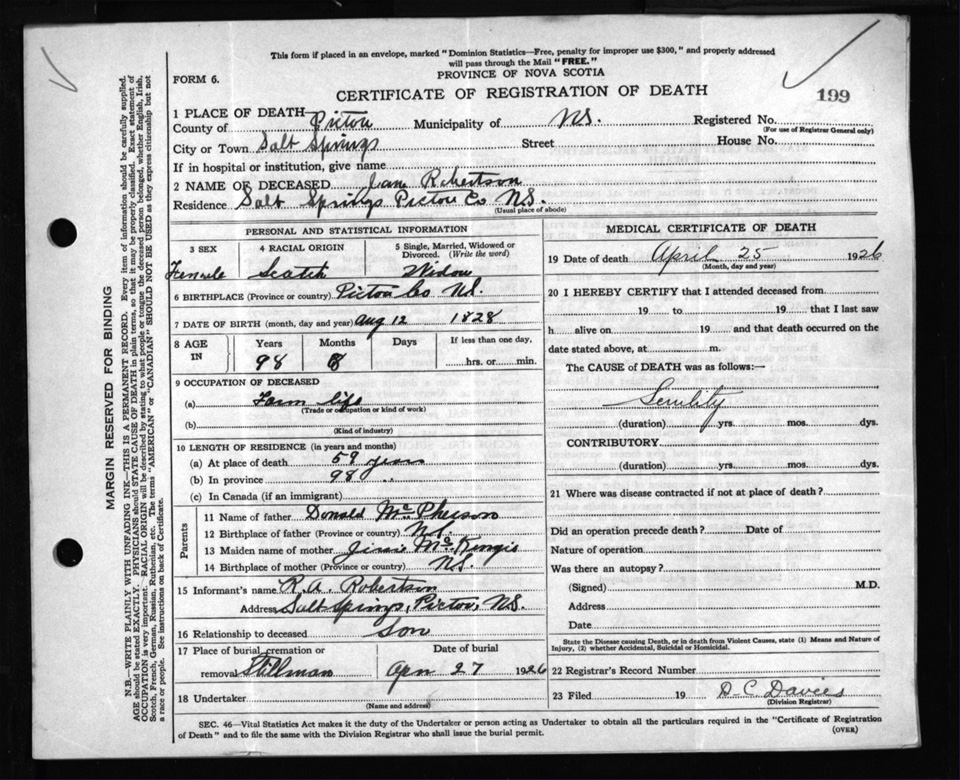 This form if placed in an envelope, marked "Dominion Statistics—Free, penalty for improper use $300," and properly addressed
will pass through the Mail "FREE."
PROVINCE OF NOVA SCOTIA
FORM 6.
CERTIFICATE OF REGISTRATION OF DEATH
199
1 PLACE OF DEATH
County of Pictou Municipality of N.S. Registered No.
(For use of Registrar General only)
City or Town Salt Springs Street House No.
If in hospital or institution, give name
2 NAME OF DECEASED Jane Robertson
Residence Salt Springs Pictou Co N.S.
(Usual place of abode)
PERSONAL AND STATISTICAL INFORMATION
3 SEX 4 RACIAL ORIGIN 5 Single, Married, Widowed or
Divorced. (Write the word)
Female Scotch Widow
6 BIRTHPLACE (Province or country) Pictou Co N.S.
7 DATE OF BIRTH (month, day and year) Aug 12 1828
8 AGE IN Years Months Days If less than one day,
98 8 hrs. or min.
9 OCCUPATION OF DECEASED
(a) Farm life
(Trade or occupation or kind of work)
(b)
(Kind of industry)
10 LENGTH OF RESIDENCE (in years and months)
(a) At place of death 59 years
(b) In province 98 "
(c) In Canada (if an immigrant)
Parents
11 Name of father Donald McPherson
12 Birthplace of father (Province or country) N.S.
13 Maiden name of mother Jessie
14 Birthplace of mother (Province or country) N.S.
15 Informant's name R.A. Robertson
Address Salt Springs, Pictou, N.S.
16 Relationship to deceased Son
17 Place of burial, cremation or Date of burial
removal Stillman Apr 27 1926
18 Undertaker
(Name and address)
MEDICAL CERTIFICATE OF DEATH
19 Date of death April 25 1926
(Month, day and year)
20 I HEREBY CERTIFY that I attended deceased from
19 to 19 that I last saw
h alive on 19 and that death occurred on the
date stated above, at m.
The CAUSE of DEATH was as follows:—
Senility
(duration) yrs. mos. dys.
CONTRIBUTORY
(duration) yrs. mos. dys.
21 Where was disease contracted if not at place of death?
Did an operation precede death? Date of
Nature of operation
Was there an autopsy?
(Signed) M.D.
Address
Date
State the Disease causing Death, or in death from Violent Causes, state (1) Means and Nature of
Injury, (2) whether Accidental, Suicidal or Homicidal.
22 Registrar's Record Number
23 Filed 19 D.C. Davies
(Division Registrar)
SEC. 46—Vital Statistics Act makes it the duty of the Undertaker or person acting as Undertaker to obtain all the particulars required in the "Certificate of Registration
of Death" and to file the same with the Division Registrar who shall issue the burial permit.
(OVER)
MARGIN RESERVED FOR BINDING
N.B.—WRITE PLAINLY WITH UNFADING INK—THIS IS A PERMANENT RECORD. Every item of information should be carefully supplied.
AGE should be stated EXACTLY. PHYSICIANS should STATE CAUSE OF DEATH in plain terms, so that it may be properly classified. Exact statement of
OCCUPATION is very important. RACIAL ORIGIN will be described by stating to what people or tongue the deceased person belonged, whether English, Irish,
Scotch, French, German, Russian, Ruthenian, etc. The terms "AMERICAN" or "CANADIAN" SHOULD NOT BE USED as they express citizenship but not
a race or people. See instructions on back of Certificate.